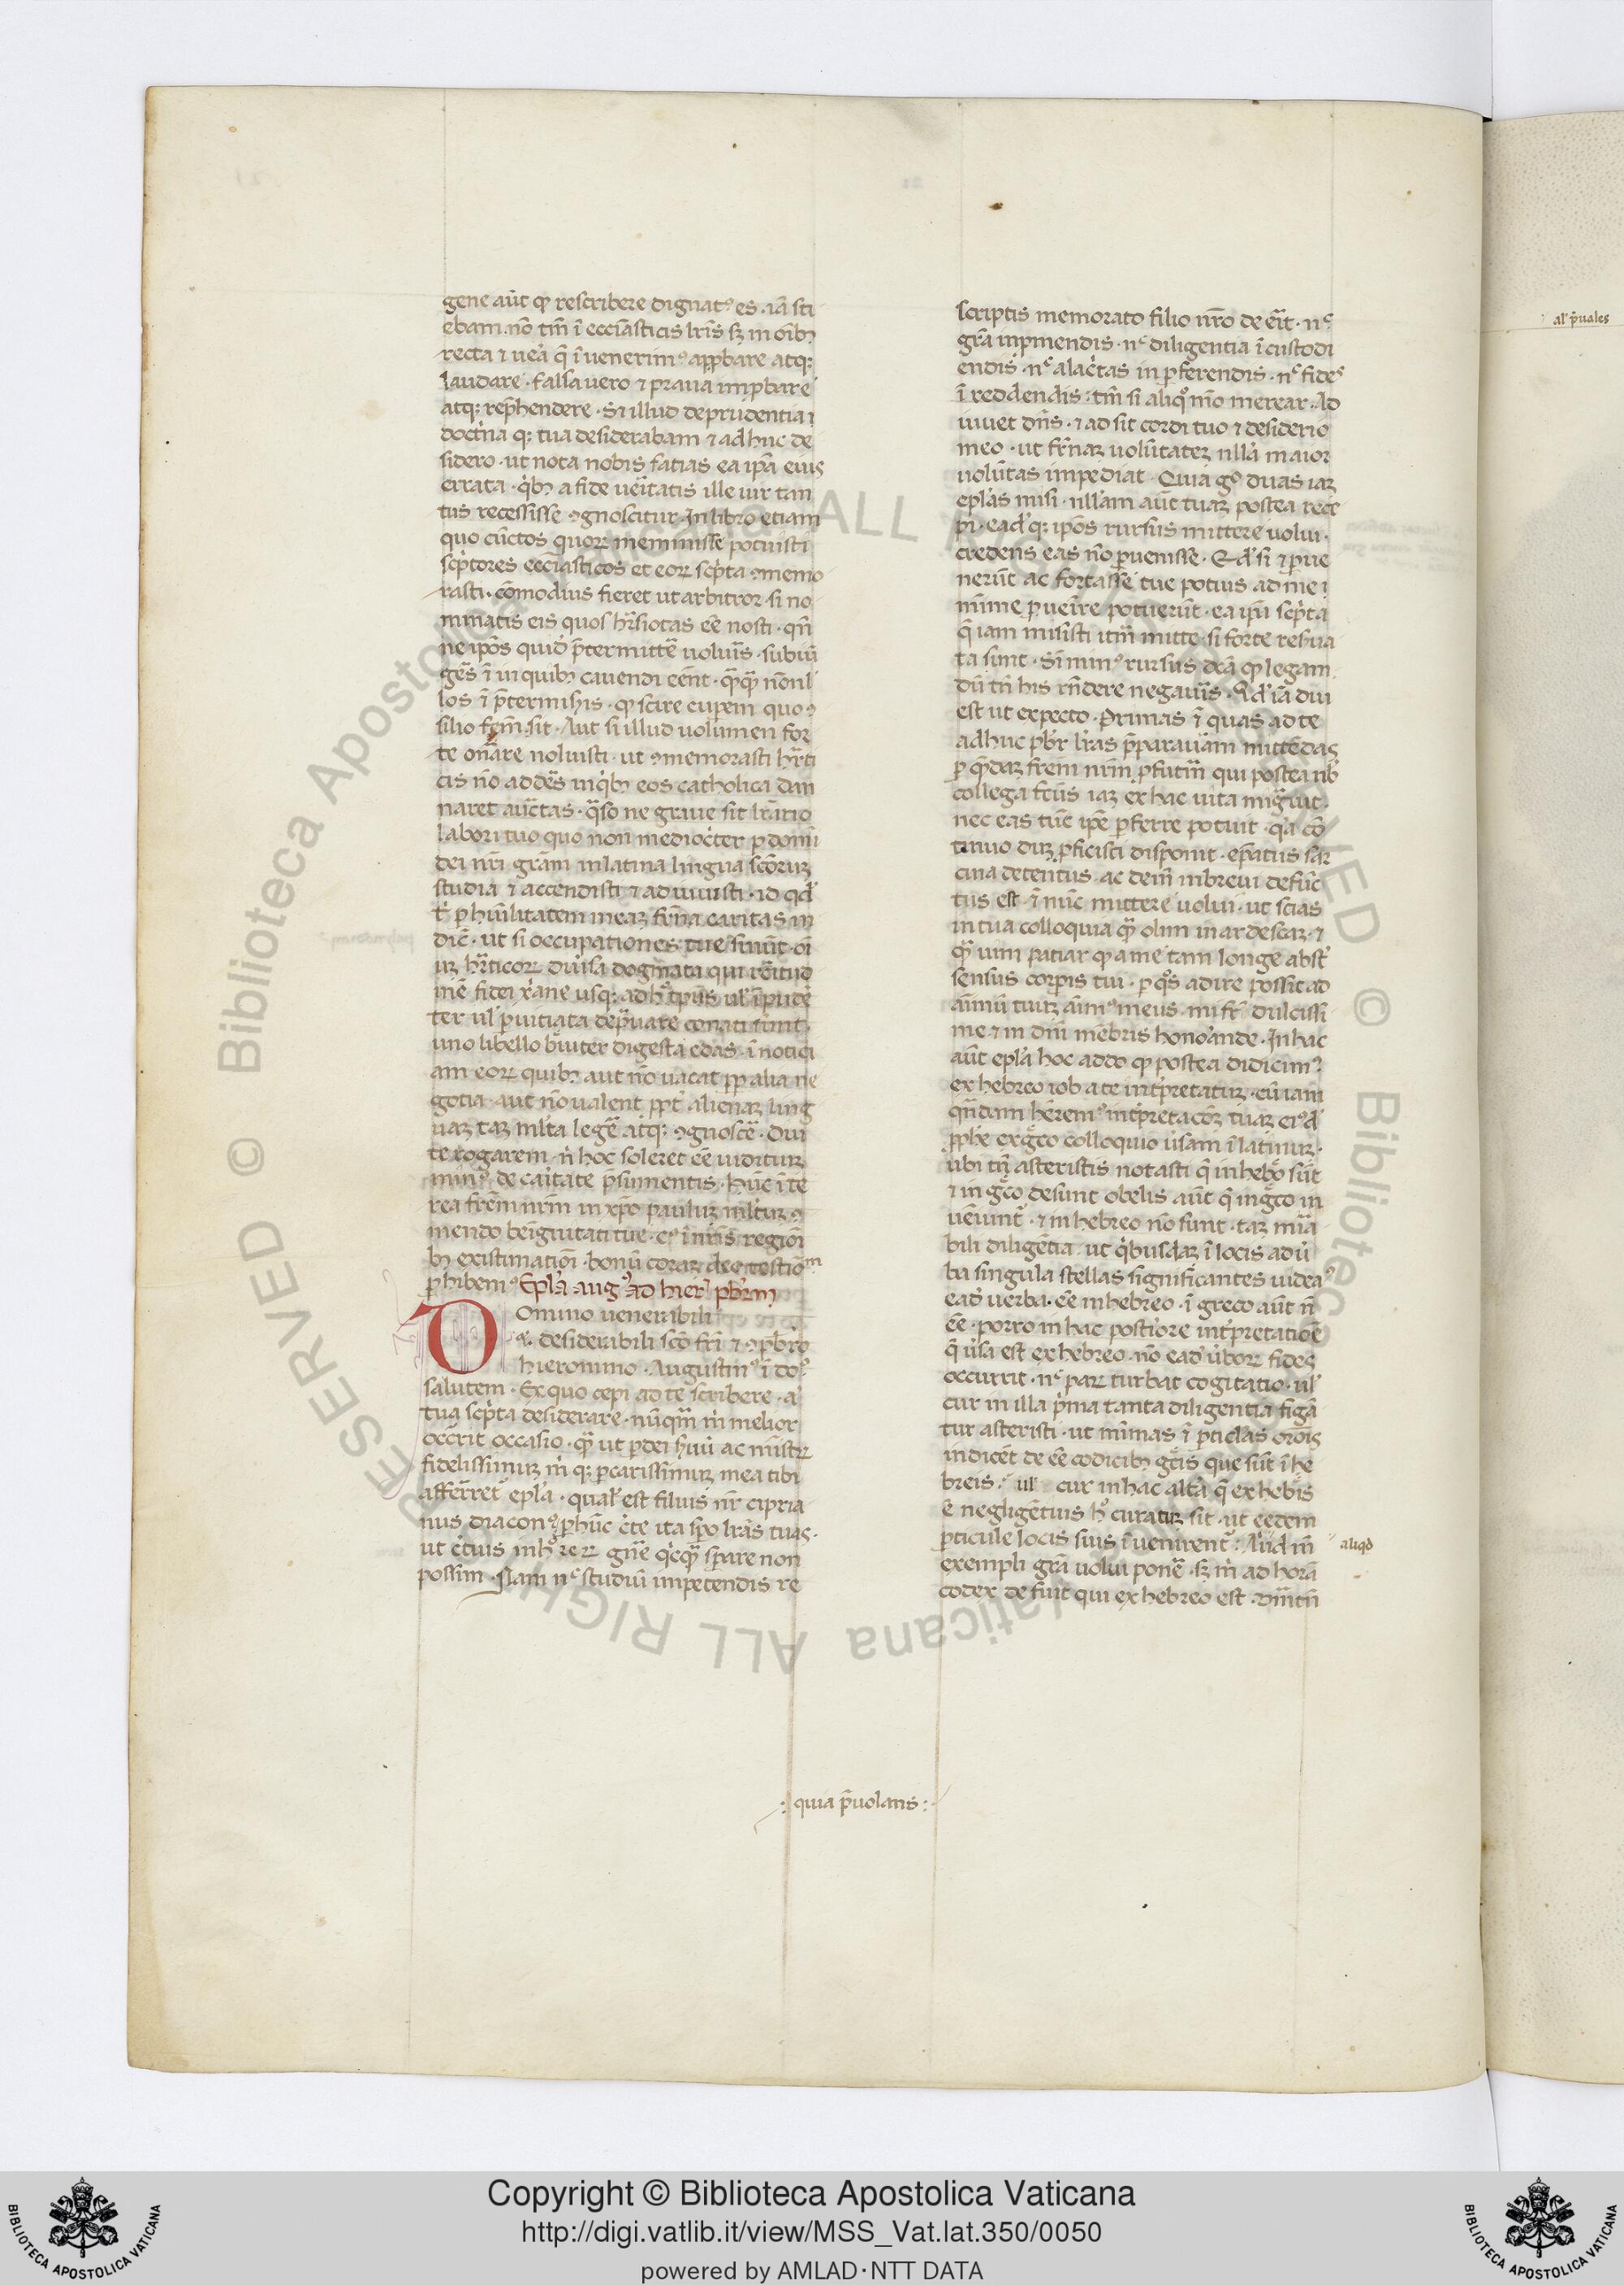 gene aūt qͥ rescribere dignatꝰ es. iā sci
ebam. nō tm̄ ī ecclīasticis lr̄is sꝫ in oīb;
recta ⁊ uēa q̄ īuenerimꝰ app̄bare atq;
laudare. falsa uero ⁊ praua imp̄bare
atq; rep̄hendere. Sꝫ illud de prudentia ⁊
doctͥna q; tua desiderabam ⁊ adhuc de
sidero. ut nota nobis fatias ea ip̄a eius
errata. qͥb; a fide ueītatis ille uir tan
tus recessisse ꝯgnoscitur. In libro etiam
quo cūctos quoꝝ meminisse potuisti
scͥptores ecclīasticos et eoꝝ scͥpta ꝯmemo
rasti. cōmodius fieret ut arbitror si no
minatis eis quos hr̄siotas eē nosti. qn̄
ne ip̄os quid p̄termittē̄ uoluīs. subiū
gēs ī in quib; cauendi eēnt. qͣqͣ nōnl̄
los ī p̄termisis. qͥ scire cupem quo ꝯ
silio fcm̄ sit. Aut si illud uolumen for
te onāre noluisti. ut ꝯmemorasti hr̄ti
cis nō addēs in qͥb; eos catholica dan
naret auc̄tas. qͣso ne graue sit lr̄ario
labori tuo quo non mediocͥter ꝑ domī
dei nr̄i grām in latina lingua scōruꝫ
studia ⁊ accendisti ⁊ adiuuisti. id qd̓
t̓ ꝑ humilitatem meaꝫ fr̄na caritas in
dic̄. ut si occupationes tue sinūt. oī
uꝫ hr̄ticoꝝ diūsa dogmata qui rēitud
inē fidei xͥane usq; ad h̓ tp̄us ul̓ īpudē
ter ul̓ ꝑuitiata dep̄uare conati sunt.
uno libello bͥuiter digesta edas. ī notici
am eoꝝ quib; aut nō uacat ꝓꝑ alia ne
gotia. aut nō ualent ꝓpt̓ alienaꝫ ling
uaꝫ taꝫ ml̓ta legē̄ atq; ꝯgnoscē̄. Diu
te rogarem. nͥ hoc soleret eē iuditiuꝫ
minꝰ de caritate p̄sumentis. Hūc īte
rea frēm nrm̄ in xp̄o pauluꝫ ml̓tuꝫ ꝯ
mendo benīgnitati tue. cꝰ ī nr̄is regiōi
b; existimationi. bonū coraꝫ deo testiōm
ꝑhibemꝰ. Epl̓a augꝰ ad hier̄ pb̄rm
Domino uenerabili
⁊ desiderabili scō fr̄i ⁊ ꝯpb̄ro
hieronimo. Augustinꝰ ī doꝰ
salutem. Ex quo cepi ad te scribere. a
tua scͥpta desiderare. nūqͣm m̓ melior
occ̄rit occasio. qͣ ut ꝑ dei sͥuū ac mīstꝝ
fidelissimuꝫ m̓ q; ꝑ carissimuꝫ mea tibi
afferret epl̓a. qual̓ est filius nr̄ cipria
nus diaconꝰ. ꝑ hūc cͥte ita sp̄o lrās tuas.
ut cͥtius in h̓ reꝝ gn̄e qͥcqͣ sꝑare non
possim. Nam nͨ studiū in petendis re
scriptis memorato filio nr̄o de eīt. nͨ
grā in pmendis. nͨ diligentia ī custodi
endis. nͨ alacͥtas in ꝑferendis. nͨ fides
ī reddendis: tm̄ si aliqͦ mō merear. Ad
iuuet dn̄s. ⁊ adsit cordi tuo ⁊ desiderio
meo. ut fr̄naꝫ uolūtateꝫ nll̓a maior
uolūtas impediat. Quia gͦ duas iaꝫ
epl̓as misi. nll̓am aūt tuaꝫ postea rece
pi. ead̓ q; ip̄os rursus mittere uolui.
credens eas nō ꝑuenisse. Qd̓ si ⁊ ꝑue
nerūt ac fortasse tue potius ad me ⁊
mīme ꝑuenīre potuerūt. ea ip̄a scͥpta
q̄ iam misisti itm̄ mitte. si forte rehua
ta sunt. Sī minꝰ rursus dc̄a qͥ legam.
dū tn̄ his rn̄dere negauīs. Qd̓ iā diu
est ut expecto. Primas ī quas ad te
adhuc pb̄r lr̄as p̄parauēram mittēdas
ꝑ qͣdaꝫ frem̄ nrm̄ ꝓfutuꝝ qui postea nb̓
collega fctūs iaꝫ ex hac uita migͣuit.
nec eas tūc ip̄e ꝑferre potuit. qͥa cō
tinuo duꝫ ꝓficisci disponit. ep̄atus sar
cina detentus. ac dein̄ in breui defūc
tus est. ī nūc mittere uolui. ut scias
in tua colloquia qͣ olim inardescaꝫ. ⁊
qͣ uim patiar qͥ a me tam longe abst̓
sensus corꝑis tui. ꝑ qͦs adire possit ad
aīmū tuuꝫ aīmꝰ meus. mi fr̄ dulcissi
me ⁊ in dn̄i mēbris honorande. In hac
aūt epl̓a hoc addo qͥ postea didicimꝰ.
ex hebreo iob a te intͥpretatuꝫ. cū iam
qn̄dam hēremꝰ intͥpretacōꝫ tuaꝫ eiꝰd̓
ꝓphē ex gͣco colloquio ūsam ī latinuꝫ.
ubi tn̄ asteriscis notasti q̄ in hebͦo sūt
⁊ in gͣco desunt. obelis aūt q̄ in gͣco in
uēiuntͬ. ⁊ in hebreo nō sunt. taꝫ mīa
bili diligētia. ut qͥbusdaꝫ ī locis ad ū
ba singula stellas significantes uideaꝰ
ead̓ uerba. eē in hebreo. ī greco aūt n̄
eē. porro in hac postiore intͥpretatiōe
q̄ ūsa est ex hebreo. nō ead̓ ūboꝝ fides
occurrit. nͨ paꝝ turbat cogitatio. ul̓
cur in illa pͥma tanta diligentia figā
tur asteristi. ut mīmas ī ꝑticlas orōis
indicēt de eē codicib; gͣcis que sūt ī he
breis: ul̓ cur in hac altͣa q̄ ex hebͥis
ē negligētius h̓ curatuꝫ sit. ut eedem
ꝑticule locis suis īuenirentͬ: Aliud in̄
exempli grā uolui ponē̄. sꝫ m̓ ad horā
codex defuit qui ex hebreo est. Dm̄ tn̄
aliqd̓
: quia p̄uolans :
al̓ p̄uales
Copyright © Biblioteca Apostolica Vaticana
http://digi.vatlib.it/view/MSS_Vat.lat.350/0050
powered by AMLAD·NTT DATA
BIBLIOTECA APOSTOLICA VATICANA
BIBLIOTECA APOSTOLICA VATICANA
© Biblioteca Apostolica Vaticana ALL RIGHTS RESERVED